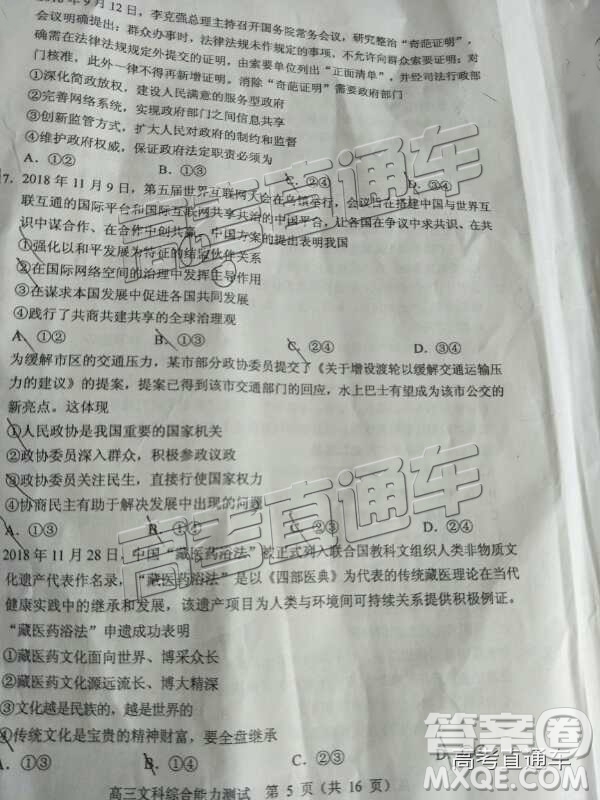 2018年9月12日，李克强总理主持召开国务院常务会议，研究整治“奇葩证明”，
会议明确提出：群众办事时，法律法规未作规定的事项，不允许向群众索要证明；对
确需在法律法规规定外提交的证明，由索要单位列出“正面清单”，并经司法行政部
门核准，此外一律不得再新增证明。消除“奇葩证明”需要政府部门
①深化简政放权，建设人民满意的服务型政府
②完善网络系统，实现政府部门之间信息共享
③创新监管方式，扩大人民对政府的制约和监督
④维护政府权威，保证政府法定职责必须为
A．①② B．①③ C．②④ D．③④
7．2018年11月9日，第五届世界互联网大会在乌镇举行，会议旨在搭建中国与世界互
联互通的国际平台和国际互联网共享共治的中国平台，让各国在争议中求共识、在共
识中谋合作、在合作中创共赢。中国方案的提出表明我国
①强化以和平发展为特征的结盟伙伴关系
②在国际网络空间的治理中发挥主导作用
③在谋求本国发展中促进各国共同发展
④践行了共商共建共享的全球治理观
A．①② B．①③ C．②④ D．③④
为缓解市区的交通压力，某市部分政协委员提交了《关于增设渡轮以缓解交通运输压
力的建议》的提案，提案已得到该市交通部门的回应，水上巴士有望成为该市公交的
新亮点。这体现
①人民政协是我国重要的国家机关
②政协委员深入群众，积极参政议政
③政协委员关注民生，直接行使国家权力
④协商民主有助于解决发展中出现的问题
A．①③ B．①④ C．②③ D．②④
2018年11月28日，中国“藏医药浴法”被正式列入联合国教科文组织人类非物质文
化遗产代表作名录，“藏医药浴法”是以《四部医典》为代表的传统藏医理论在当代
健康实践中的继承和发展，该遗产项目为人类与环境间可持续关系提供积极例证。
“藏医药浴法”申遗成功表明
①藏医药文化面向世界、博采众长
②藏医药文化源远流长、博大精深
③文化越是民族的，越是世界的
④传统文化是宝贵的精神财富，要全盘继承
A．①③ B．①④ C．②③ D．
高三文科综合能力测试 第5页（共16页）
高考直通车
高考直通车
高考直通车
答案圈
MXQE.COM